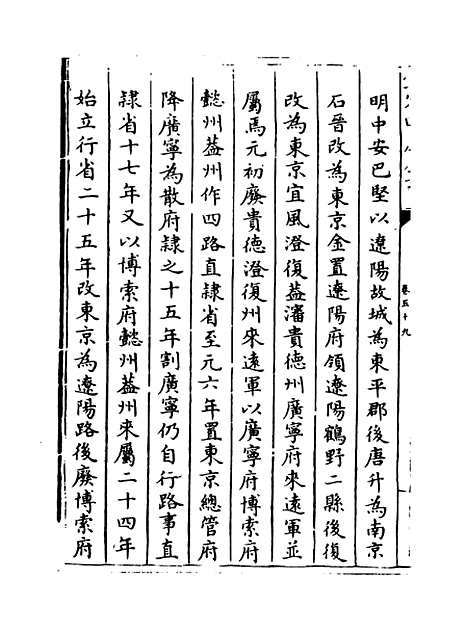 明中安巴堅以遼陽故城為東平郡後唐升為南京
石晉改為東京金置遼陽府領遼陽鶴野二縣後復
改為東京宜風澄復葢瀋貴德州廣寧府來遠軍並
屬焉元初廢貴德澄復州來遠軍以廣寧府博索府
懿州葢州作四路直隸省至元六年置東京總管府
降廣寧為散府隸之十五年割廣寧仍自行路事直
隸省十七年又以博索府懿州葢州來屬二十四年
始立行省二十五年改東京為遼陽路後廢博索府
卷五十九